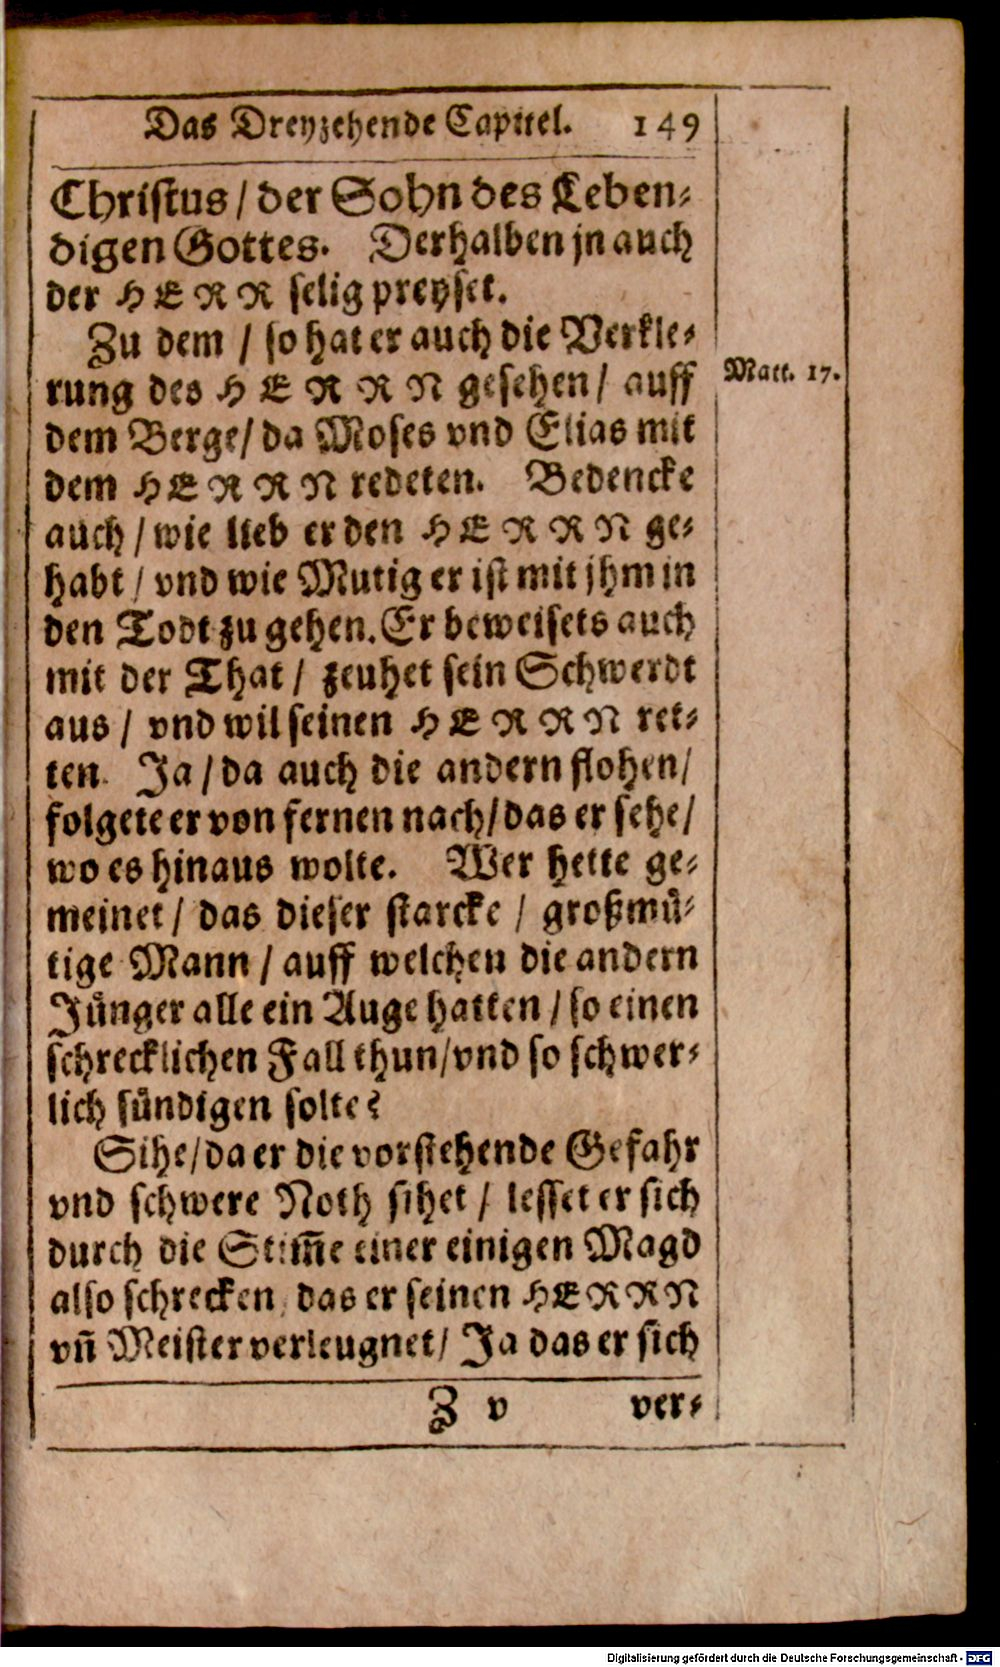 Das Dreyzehende Capittel. 149
Christus / der Sohn des Leben-
digen Gottes. Derhalben jn auch
der HERR selig preyset.
Zu dem / so hat er auch die Verkle-
rung des HERRN gesehen / auff
Matt. 17.
dem Berge / da Moses vnd Elias mit
dem HERRN redeten. Bedencke
auch / wie lieb er den HERRN ge-
habt / vnd wie Mutig er ist mit jhm in
den Todt zu gehen. Er beweisets auch
mit der That / zeuhet sein Schwerdt
aus / vnd wil seinen HERRN ret-
ten. Ja / da auch die andern flohen /
folgete er von fernen nach / das er sehe /
wo es hinaus wolte. Wer hette ge-
meinet / das dieser starcke / großmuͤ-
tige Mann / auff welchen die andern
Juͤnger alle ein Auge hatten / so einen
schrecklichen Fall thun / vnd so schwer-
lich suͤndigen solte?
Sihe / da er die vorstehende Gefahr
vnd schwere Noth sihet / lesset er sich
durch die Stim̃e einer einigen Magd
also schrecken, das er seinen HERRN
vn̄ Meister verleugnet / Ja das er sich
Z v ver-
Digitalisierung gefördert durch die Deutsche Forschungsgemeinschaft - DFG